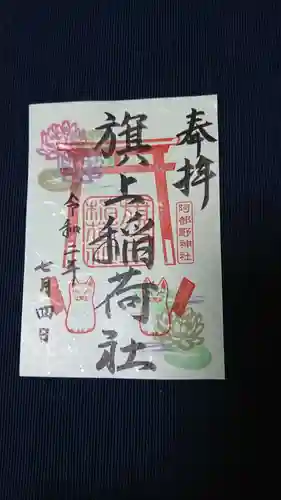 奉拝
阿部野神社
旗上稲荷社
令和二年
七月四日